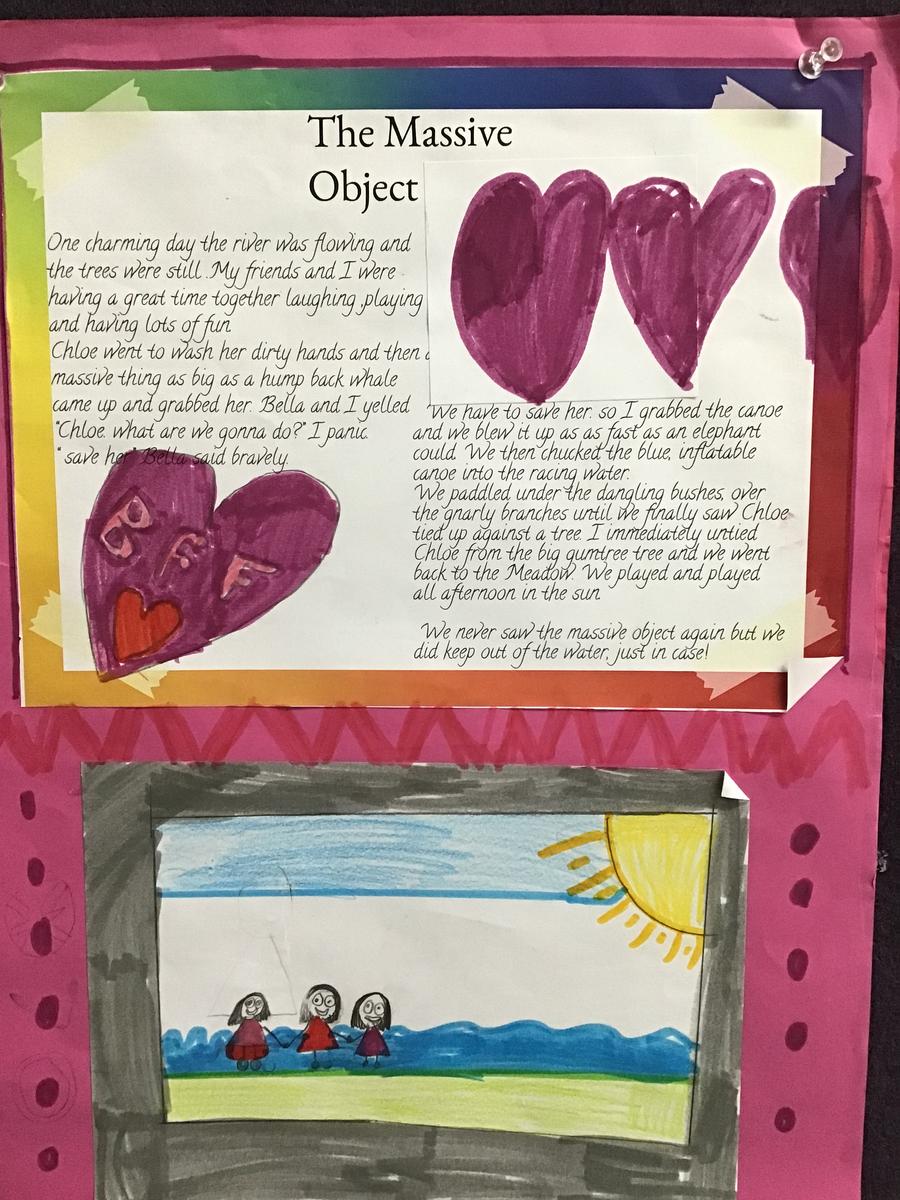 The Massive
Object
One charming day the river was flowing and
the trees were still. My friends and I were
having a great time together laughing ,playing
and having lots of fun
Chloe went to wash her dirty hands and then a
massive thing as big as a hump back whale
came up and grabbed her. Bella and I yelled
"Chloe. what are we gonna do?" I panic.
" save her" Bella said bravely.
BFF
"We have to save her. so I grabbed the canoe
and we blew it up as as fast as an elephant
could. We then chucked the blue, inflatable
canoe into the racing water.
We paddled under the dangling bushes, over
the gnarly branches until we finally saw Chloe
tied up against a tree. I immediately untied
Chloe from the big gumtree tree and we went
back to the Meadow. We played and played
all afternoon in the sun.
We never saw the massive object again but we
did keep out of the water, just in case!